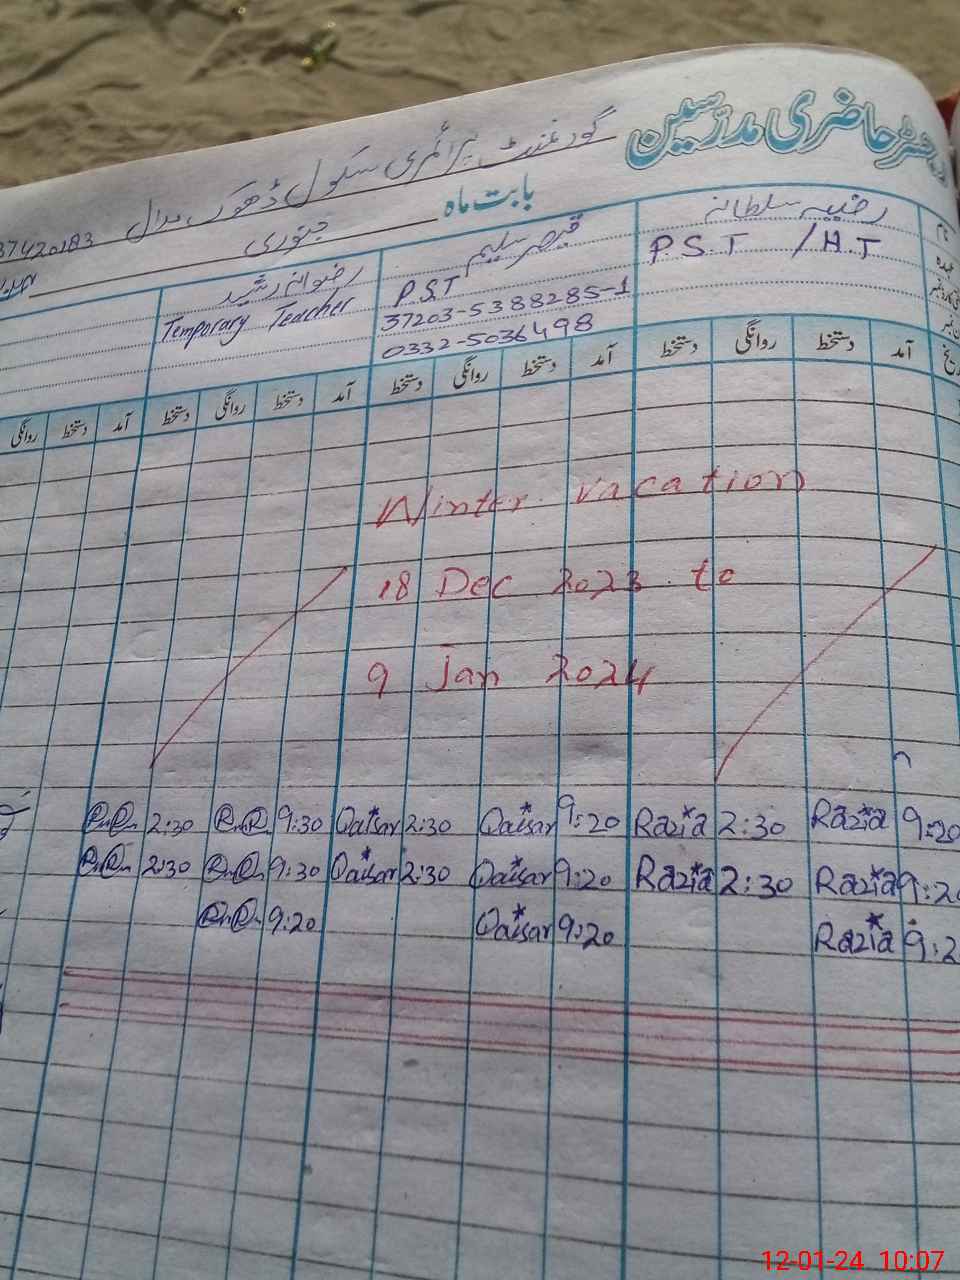 رجسٹر حاضری مدرسین
گورنمنٹ پرائمری سکول ڈھوک
37420183
بابت ماہ جنوری
نام
عہدہ
رضیہ سلطانہ
P.S.T / H.T
قیصر سلیم
P.S.T
37203-5388285-1
0332-5036498
رضوانہ رشید
Temporary Teacher
تاریخ آمد دستخط روانگی دستخط آمد دستخط روانگی دستخط آمد دستخط روانگی دستخط آمد دستخط روانگی
Winter vacation
18 Dec 2023 to
9 Jan 2024
2:30 9:30 Qaisar 2:30 Qaisar 9:20 Razia 2:30 Razia 9:20
2:30 9:30 Qaisar 2:30 Qaisar 9:20 Razia 2:30 Razia 9:20
9:20 Qaisar 9:20 Razia 9:2
12-01-24 10:07